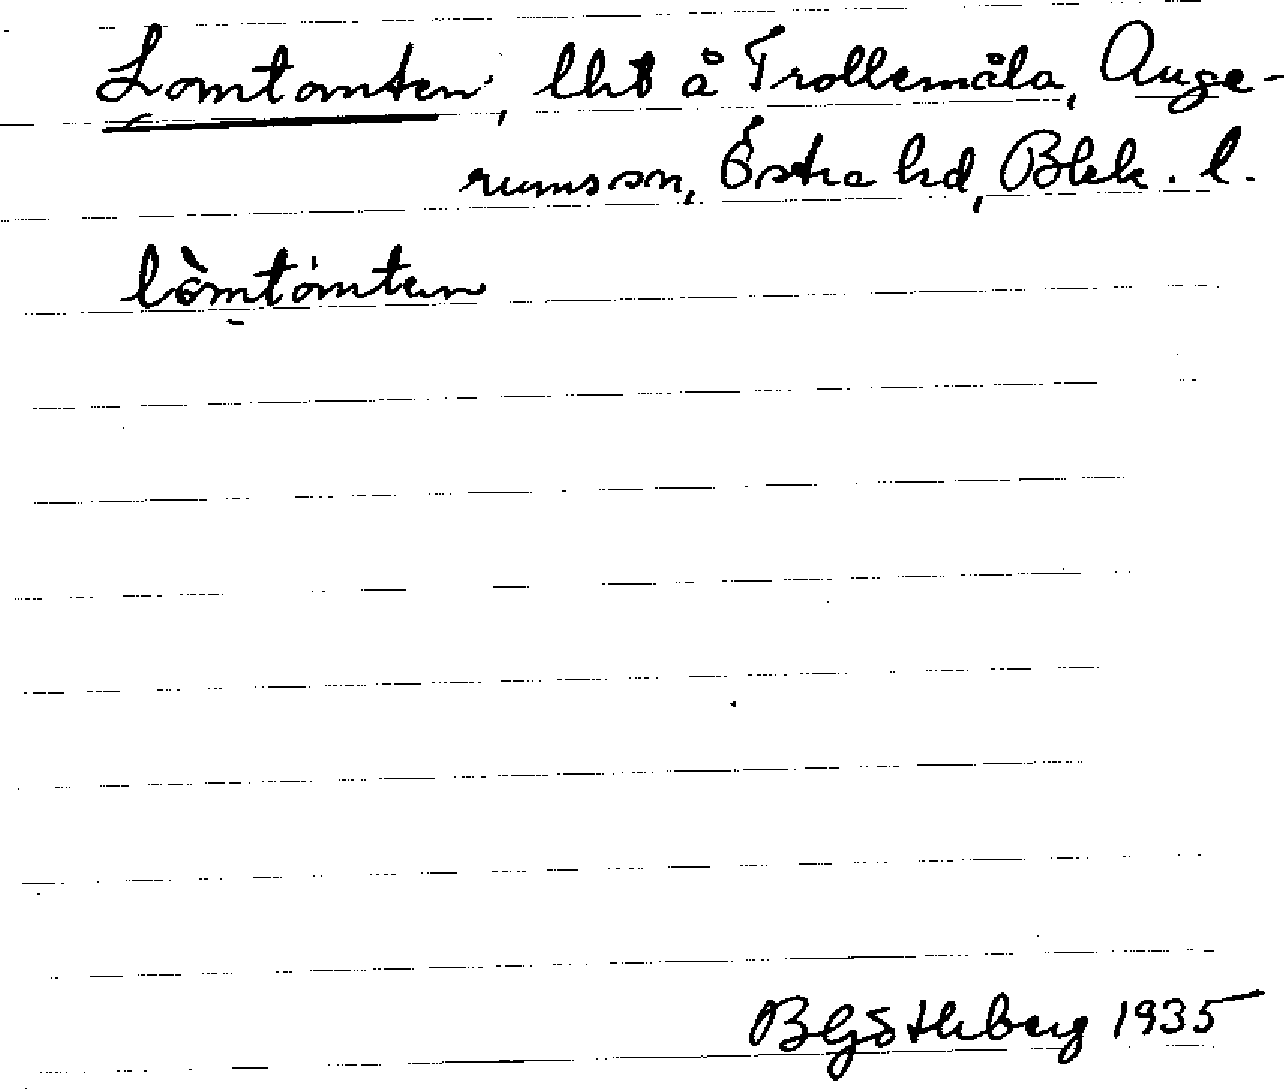 Lomtomten, lht å Trollemåla, Auge-
rums sn, Östra hd, Blek. l.
lòmtómten
B Götlberg 1935